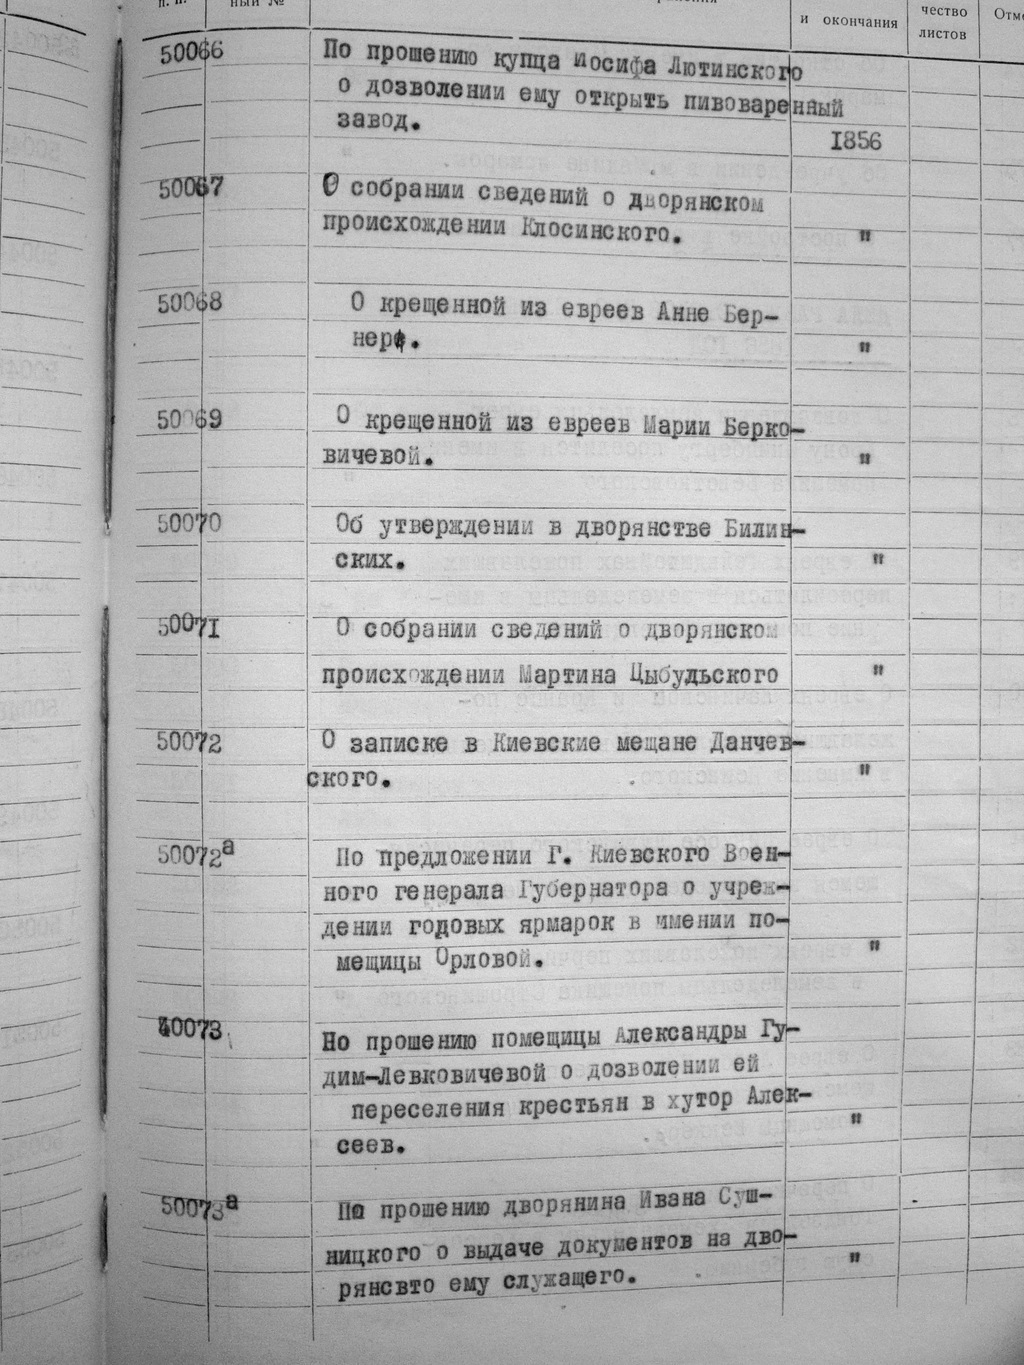 п. п.
ный №
и окончания
чество
листов
50066
По прошению купца Иосифа Лютинского
о дозволении ему открыть пивоваренный
завод.
1856
50067
О собрании сведений о дворянском
происхождении Клосинского. "
50068
О крещенной из евреев Анне Бер-
нер. "
50069
О крещенной из евреев Марии Берко-
вичевой. "
50070
Об утверждении в дворянстве Билин-
ских. "
50071
О собрании сведений о дворянском
происхождении Мартина Цыбудьского "
50072
О записке в Киевские мещане Данчев-
ского. "
50072а
По предложении Г. Киевского Воен-
ного генерала Губернатора о учреж-
дении годовых ярмарок в имении по-
мещицы Орловой. "
50073
По прошению помещицы Александры Гу-
дим-Левковичевой о дозволении ей
переселения крестьян в хутор Алек-
сеев. "
50073а
По прошению дворянина Ивана Суш-
ницкого о выдаче документов на дво-
рянсвто ему служащего. "